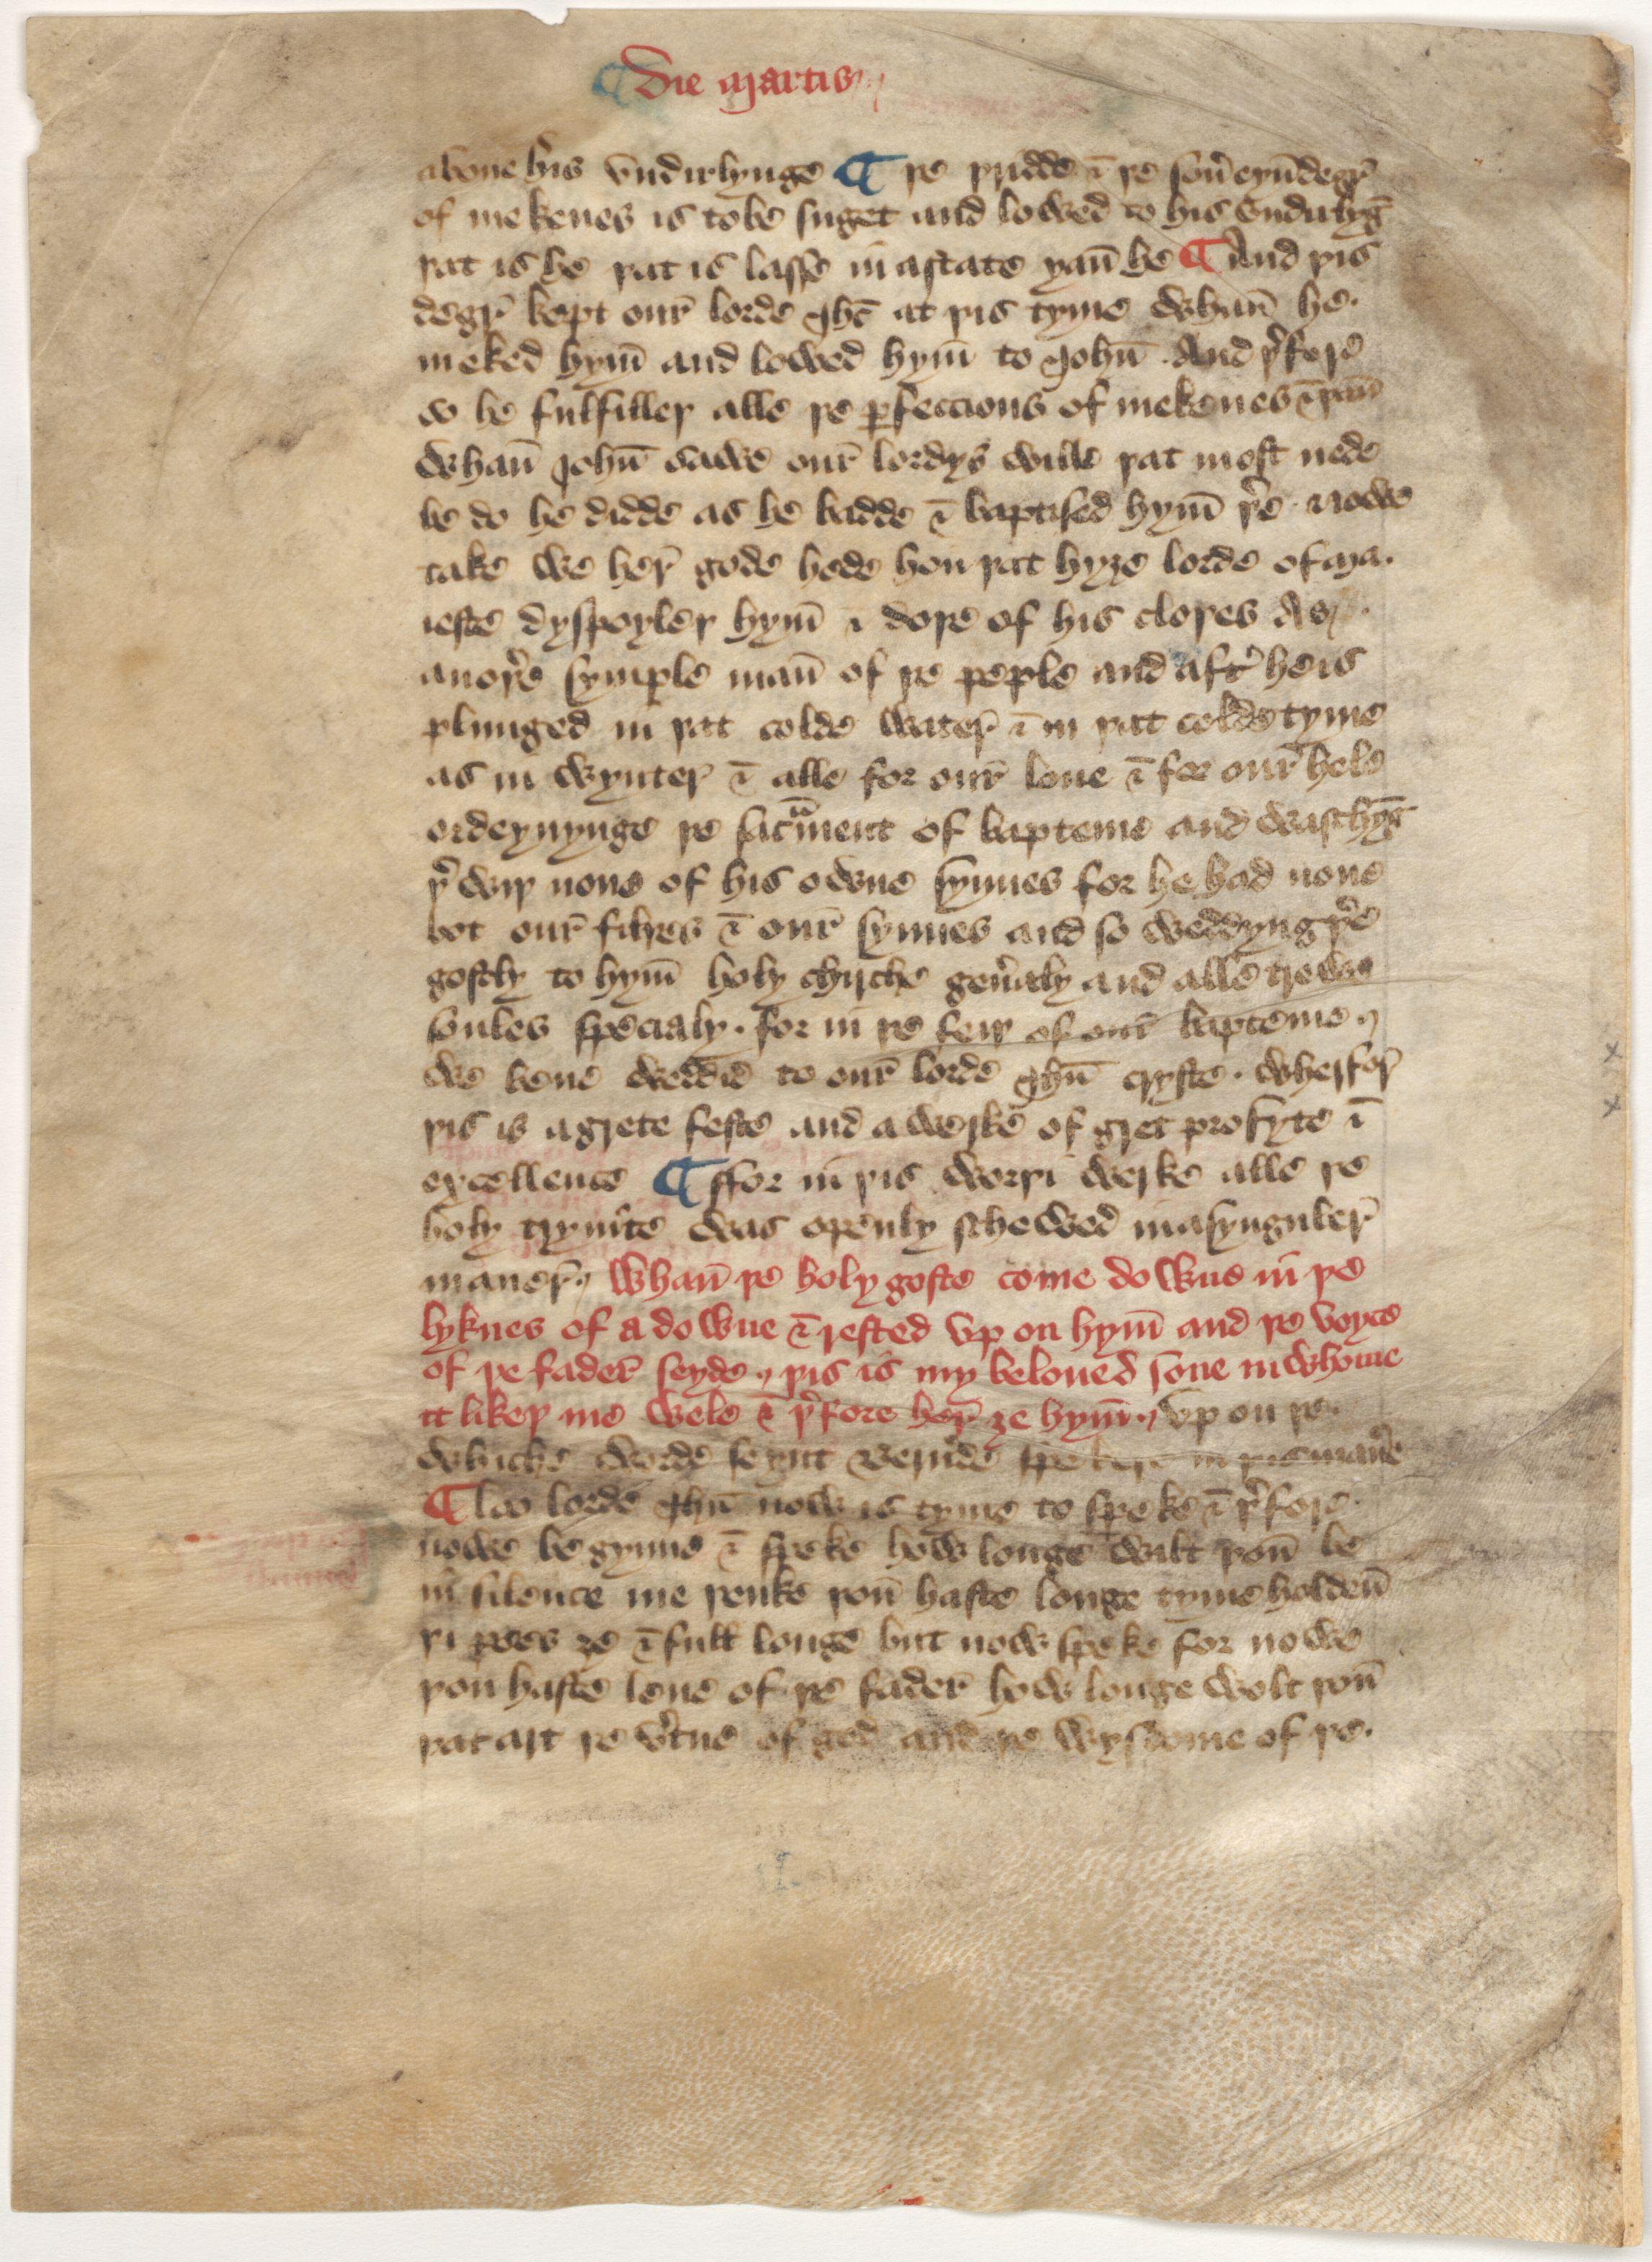 ¶ Die martis
aboue his vndirlynge ¶ þe þridde ⁊ þe souereyn degr̄
of mekenes is to be suget and lowed to his vndirlyḡ
þat is he þat is lasse in astate þan̄ he ¶ And þis
degr̄ kept our̄ lorde Jhc̄ at þis tyme whan̄ he.
meked hym̄ and lowed hym̄ to John̄. And þ̉fore
so he fulfilleþ alle þe ꝑfeccions of mekenes ⁊ þan̄
whan̄ John̄ sawe our̄ lordys wille þat most nede
be do he didde as he badde ⁊ baptised hym̄ þ̉e. nowe
take we her̄ gode hede hou þat hyȝe lorde of ma.
ieste dyspoyleþ hym̄ ⁊ doþe of his cloþes As
anoþ̉e symple man̄ of þe peple and aft̉ he is
plunged in þat colde water̄ ⁊ in þat colde tyme
as in wynter̄ ⁊ alle for our̄ loue ⁊ for our̄ hele
ordeynynge þe sacᵃment of bapteme and waschyḡ
þ̉wiþ none of his owne synnes for he had none
bot our̄ filþes ⁊ our̄ synnes and so weddyng þ̉e
gostly to hym̄ holy chirche gen̉aly and alle trewe
soules specialy. for in þe feiþ of our̄ bapteme
we bene weddid to our̄ lorde Jhū cryste. wherfor̄
þis is a grete feste and a werke of gret profyte ⁊
excellence ¶ ffor in þis worþi werke alle þe
holy trynite was openly schewed in a synguler̄
maner̄. Whan̄ þe holy goste come downe in þe
lyknes of a dowue ⁊ rested vp on hym̄ and þe voyce
of þe fader̄ seyde þis is my beloued sone in whome
it likeþ me wele ⁊ þ̉fore her̄ ȝe hym̄. vp on þe.
whiche worde seynt Bern̉de spekeþ in þis man̉e
¶ loo lorde Jhū now is tyme to speke ⁊ þ̉fore
nowe begynne ⁊ speke how longe wilt þou̅ be
in silence me þenke þou̅ haste longe tyme holden̄
þi pees ȝe ⁊ full longe but now speke for nowe
þou haste leue of þe fader̄ how longe wolt þou̅
þat art þe v̉tue of god and þe wysdome of þe.